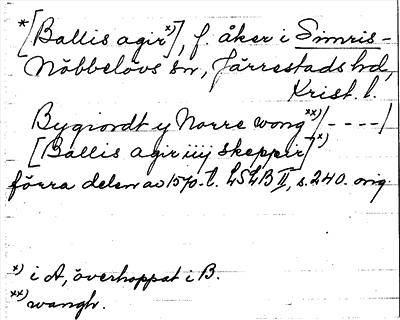 *[Ballis agir x)], f. åker i Simris-
Nöbbelövs sn, Järrestads hd,
Krist. l.
Bygiordt y Norre wong xx) /----/
[Ballis agir iiij skeppir] x)
förra delen av 1570-t. LSLB II, s. 240. orig
x) i A, överhoppat i B.
xx) wangh.